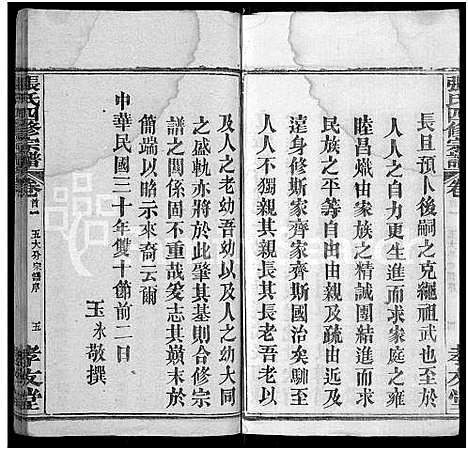 張氏四修宗譜
卷首一
孝友堂
長且預卜後嗣之克繩祖武也於
人人之自力更生進而求家庭之雍
睦昌熾由家族之精誠團結進而求
民族之平等自由由親及疏由近及
遠身修斯家齊家齊斯國治矣馴至
人人不獨親其親長其長老吾老以
及人之老幼吾幼以及人之幼大同
之盛軌亦將於此肇其基則合修宗
譜之關係固不重哉爰志其巔末於
簡端以略示來裔云爾
中華民國三十年雙十節前二日
玉永敬撰
張氏四修宗譜
卷首一
玉大分宗譜序
五
孝友堂